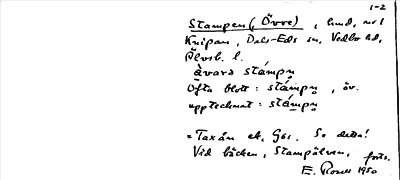 1-2
Stampen (, Övre) , hmd, nr 1
Knipan, Dals-Eds sn, Vedbo hd,
Älvsb. l.
åvara stámpn̥
Ofta blott: stámpn̥, äv.
upptecknat: stámpn̥
= Taxån ek. G61. Se detta!
Vid bäcken, Stampälven, forts.
E. Rosell 1950